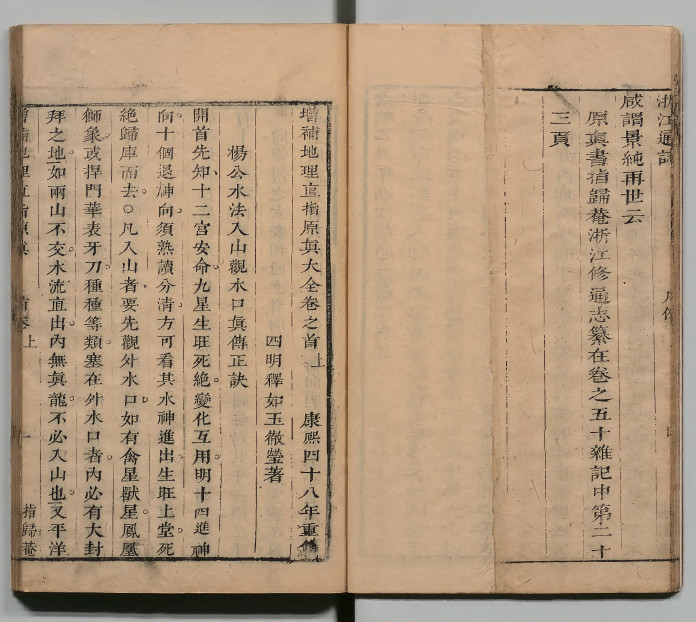 浙江通誌
咸謂景純再世云
原眞書指歸菴浙江修通志纂在卷之五十雜記中第二十
三頁
增補地理直指原眞大全卷之首上 康熙四十八年重鐫
四明釋如玉徹瑩著
楊公水法入山觀水口眞傳正訣
開首先知十二宮安命九星生旺死絶變化互用明十四進神
向十個退神向須熟讀分清方可看其水神進出生旺上堂死
絶歸庫而去○凡入山者要先觀外水口如有禽星獸星鳳凰
獅象或捍門華表牙刀種種等類塞在外水口者內必有大封
拜之地如兩山不交水流直出內無眞龍不必入山也又平洋
增補地理直指原眞 首卷上 一 指歸菴